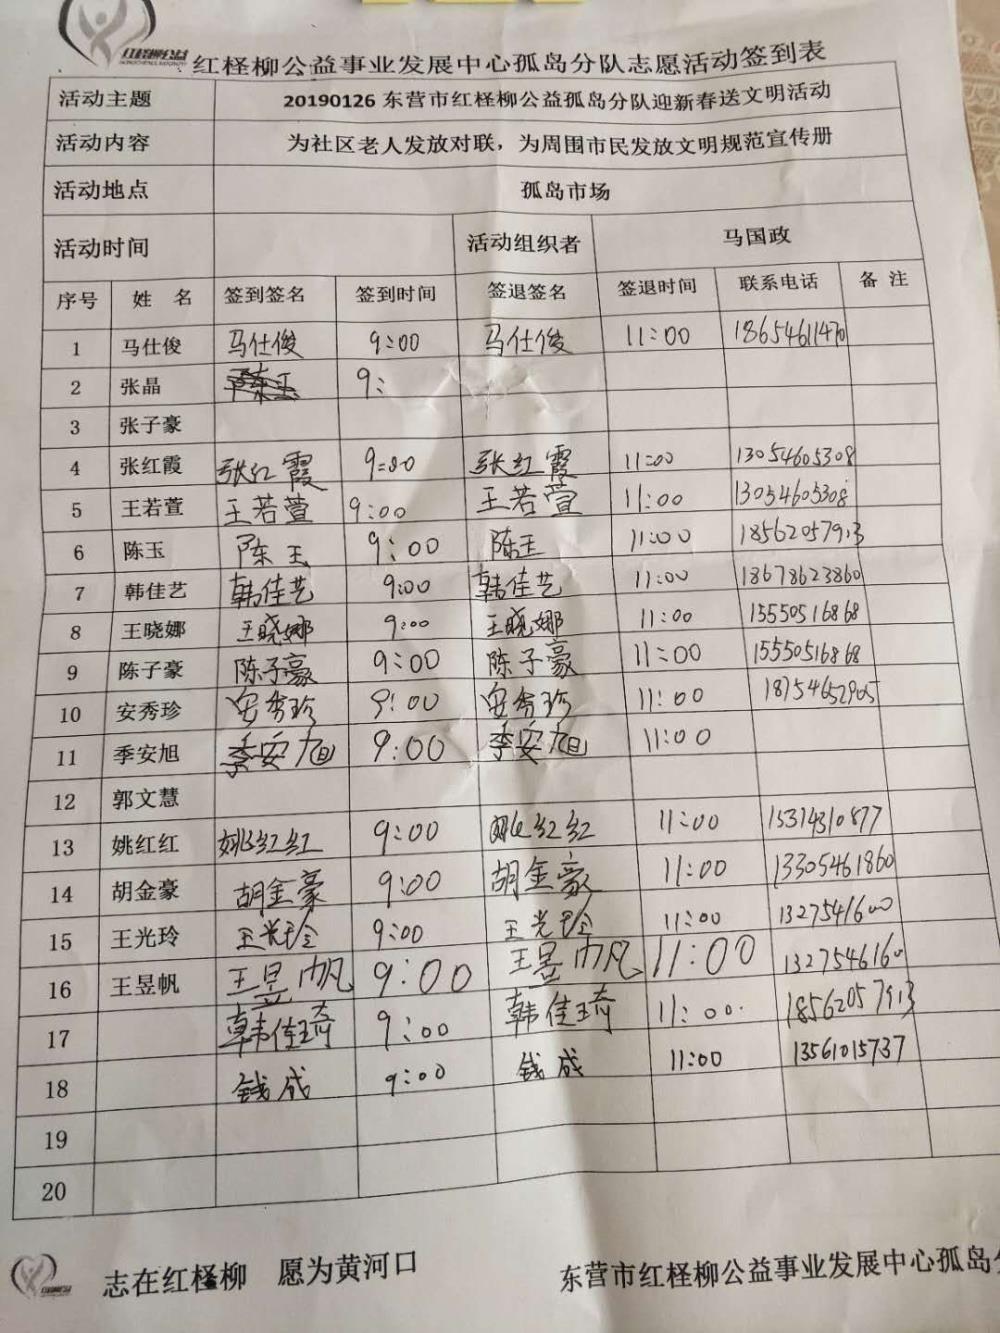 红柽柳公益
红柽柳公益事业发展中心孤岛分队志愿活动签到表
活动主题 20190126 东营市红柽柳公益孤岛分队迎新春送文明活动
活动内容 为社区老人发放对联，为周围市民发放文明规范宣传册
活动地点 孤岛市场
活动时间 活动组织者 马国政
序号 姓 名 签到签名 签到时间 签退签名 签退时间 联系电话 备 注
1 马仕俊 马仕俊 9:00 马仕俊 11:00 18654611470
2 张晶 陈玉 9:
3 张子豪
4 张红霞 张红霞 9:00 张红霞 11:00 13054605308
5 王若萱 王若萱 9:00 王若萱 11:00 13054605308
6 陈玉 陈玉 9:00 陈玉 11:00 18562057913
7 韩佳艺 韩佳艺 9:00 韩佳艺 11:00 18678623860
8 王晓娜 王晓娜 9:00 王晓娜 11:00 15550516868
9 陈子豪 陈子豪 9:00 陈子豪 11:00 15550516868
10 安秀珍 安秀珍 9:00 安秀珍 11:00 18754652905
11 季安旭 季安旭 9:00 季安旭 11:00
12 郭文慧
13 姚红红 姚红红 9:00 姚红红 11:00 15314310877
14 胡金豪 胡金豪 9:00 胡金豪 11:00 13305461860
15 王光玲 王光玲 9:00 王光玲 11:00
16 王昱帆 王昱帆 9:00 王昱帆 11:00
17 韩佳琦 9:00 韩佳琦 11:00 18562057913
18 钱成 9:00 钱成 11:00 13561015737
19
20
志在红柽柳 愿为黄河口 东营市红柽柳公益事业发展中心孤岛分